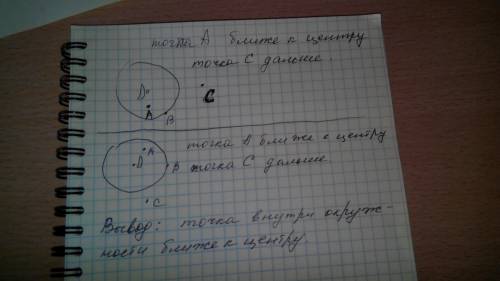 точка A ближе к центру
точка C дальше.
D
C
A
B
точка A ближе к центру
A
D
B точка C дальше
C
Вывод: точка внутри окруж-
ности ближе к центру